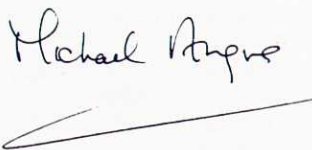 Michael Angus